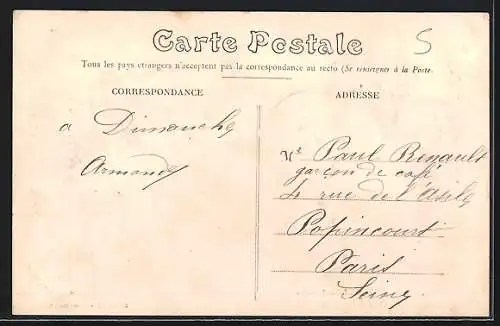 Carte Postale
5
Tous les pays étrangers n'acceptent pas la correspondance au recto (Se renseigner à la Poste
CORRESPONDANCE
ADRESSE
a Dimanche
Armande
Mr Paul Renault
garçon de café
4 rue de l'Asile
Popincourt
Paris
Seine